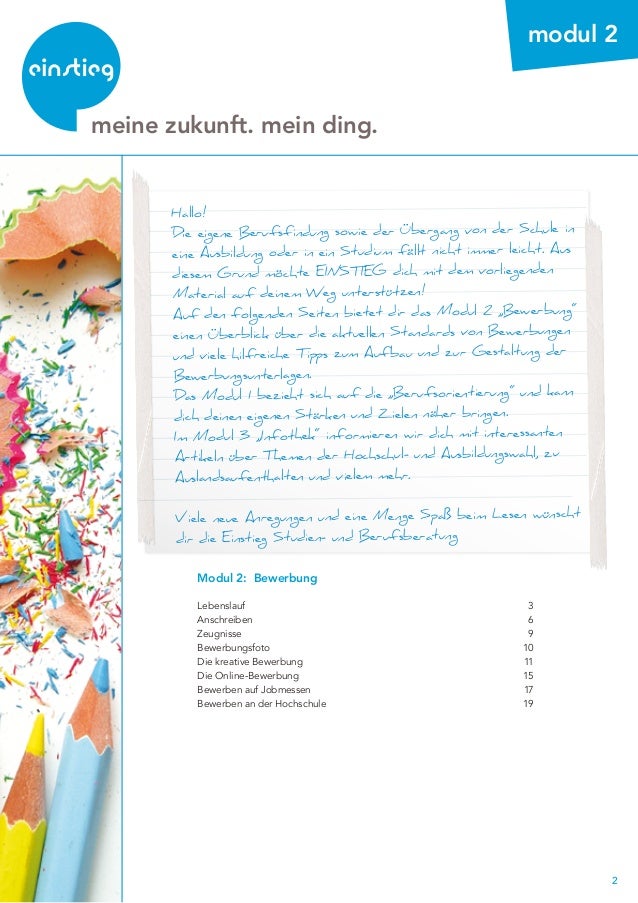 modul 2
einstieg
meine zukunft. mein ding.
Hallo!
Die eigene Berufsfindung sowie der Übergang von der Schule in
eine Ausbildung oder in ein Studium fällt nicht immer leicht. Aus
diesem Grund möchte EINSTIEG dich mit dem vorliegenden
Material auf deinem Weg unterstützen!
Auf den folgenden Seiten bietet dir das Modul 2 „Bewerbung“
einen Überblick über die aktuellen Standards von Bewerbungen
und viele hilfreiche Tipps zum Aufbau und zur Gestaltung der
Bewerbungsunterlagen.
Das Modul 1 bezieht sich auf die „Berufsorientierung“ und kann
dich deinen eigenen Stärken und Zielen näher bringen.
Im Modul 3 „Infothek“ informieren wir dich mit interessanten
Artikeln über Themen der Hochschul- und Ausbildungswahl, zu
Auslandsaufenthalten und vielem mehr.
Viele neue Anregungen und eine Menge Spaß beim Lesen wünscht
dir die Einstieg Studien- und Berufsberatung
Modul 2: Bewerbung
Lebenslauf 3
Anschreiben 6
Zeugnisse 9
Bewerbungsfoto 10
Die kreative Bewerbung 11
Die Online-Bewerbung 15
Bewerben auf Jobmessen 17
Bewerben an der Hochschule 19
2